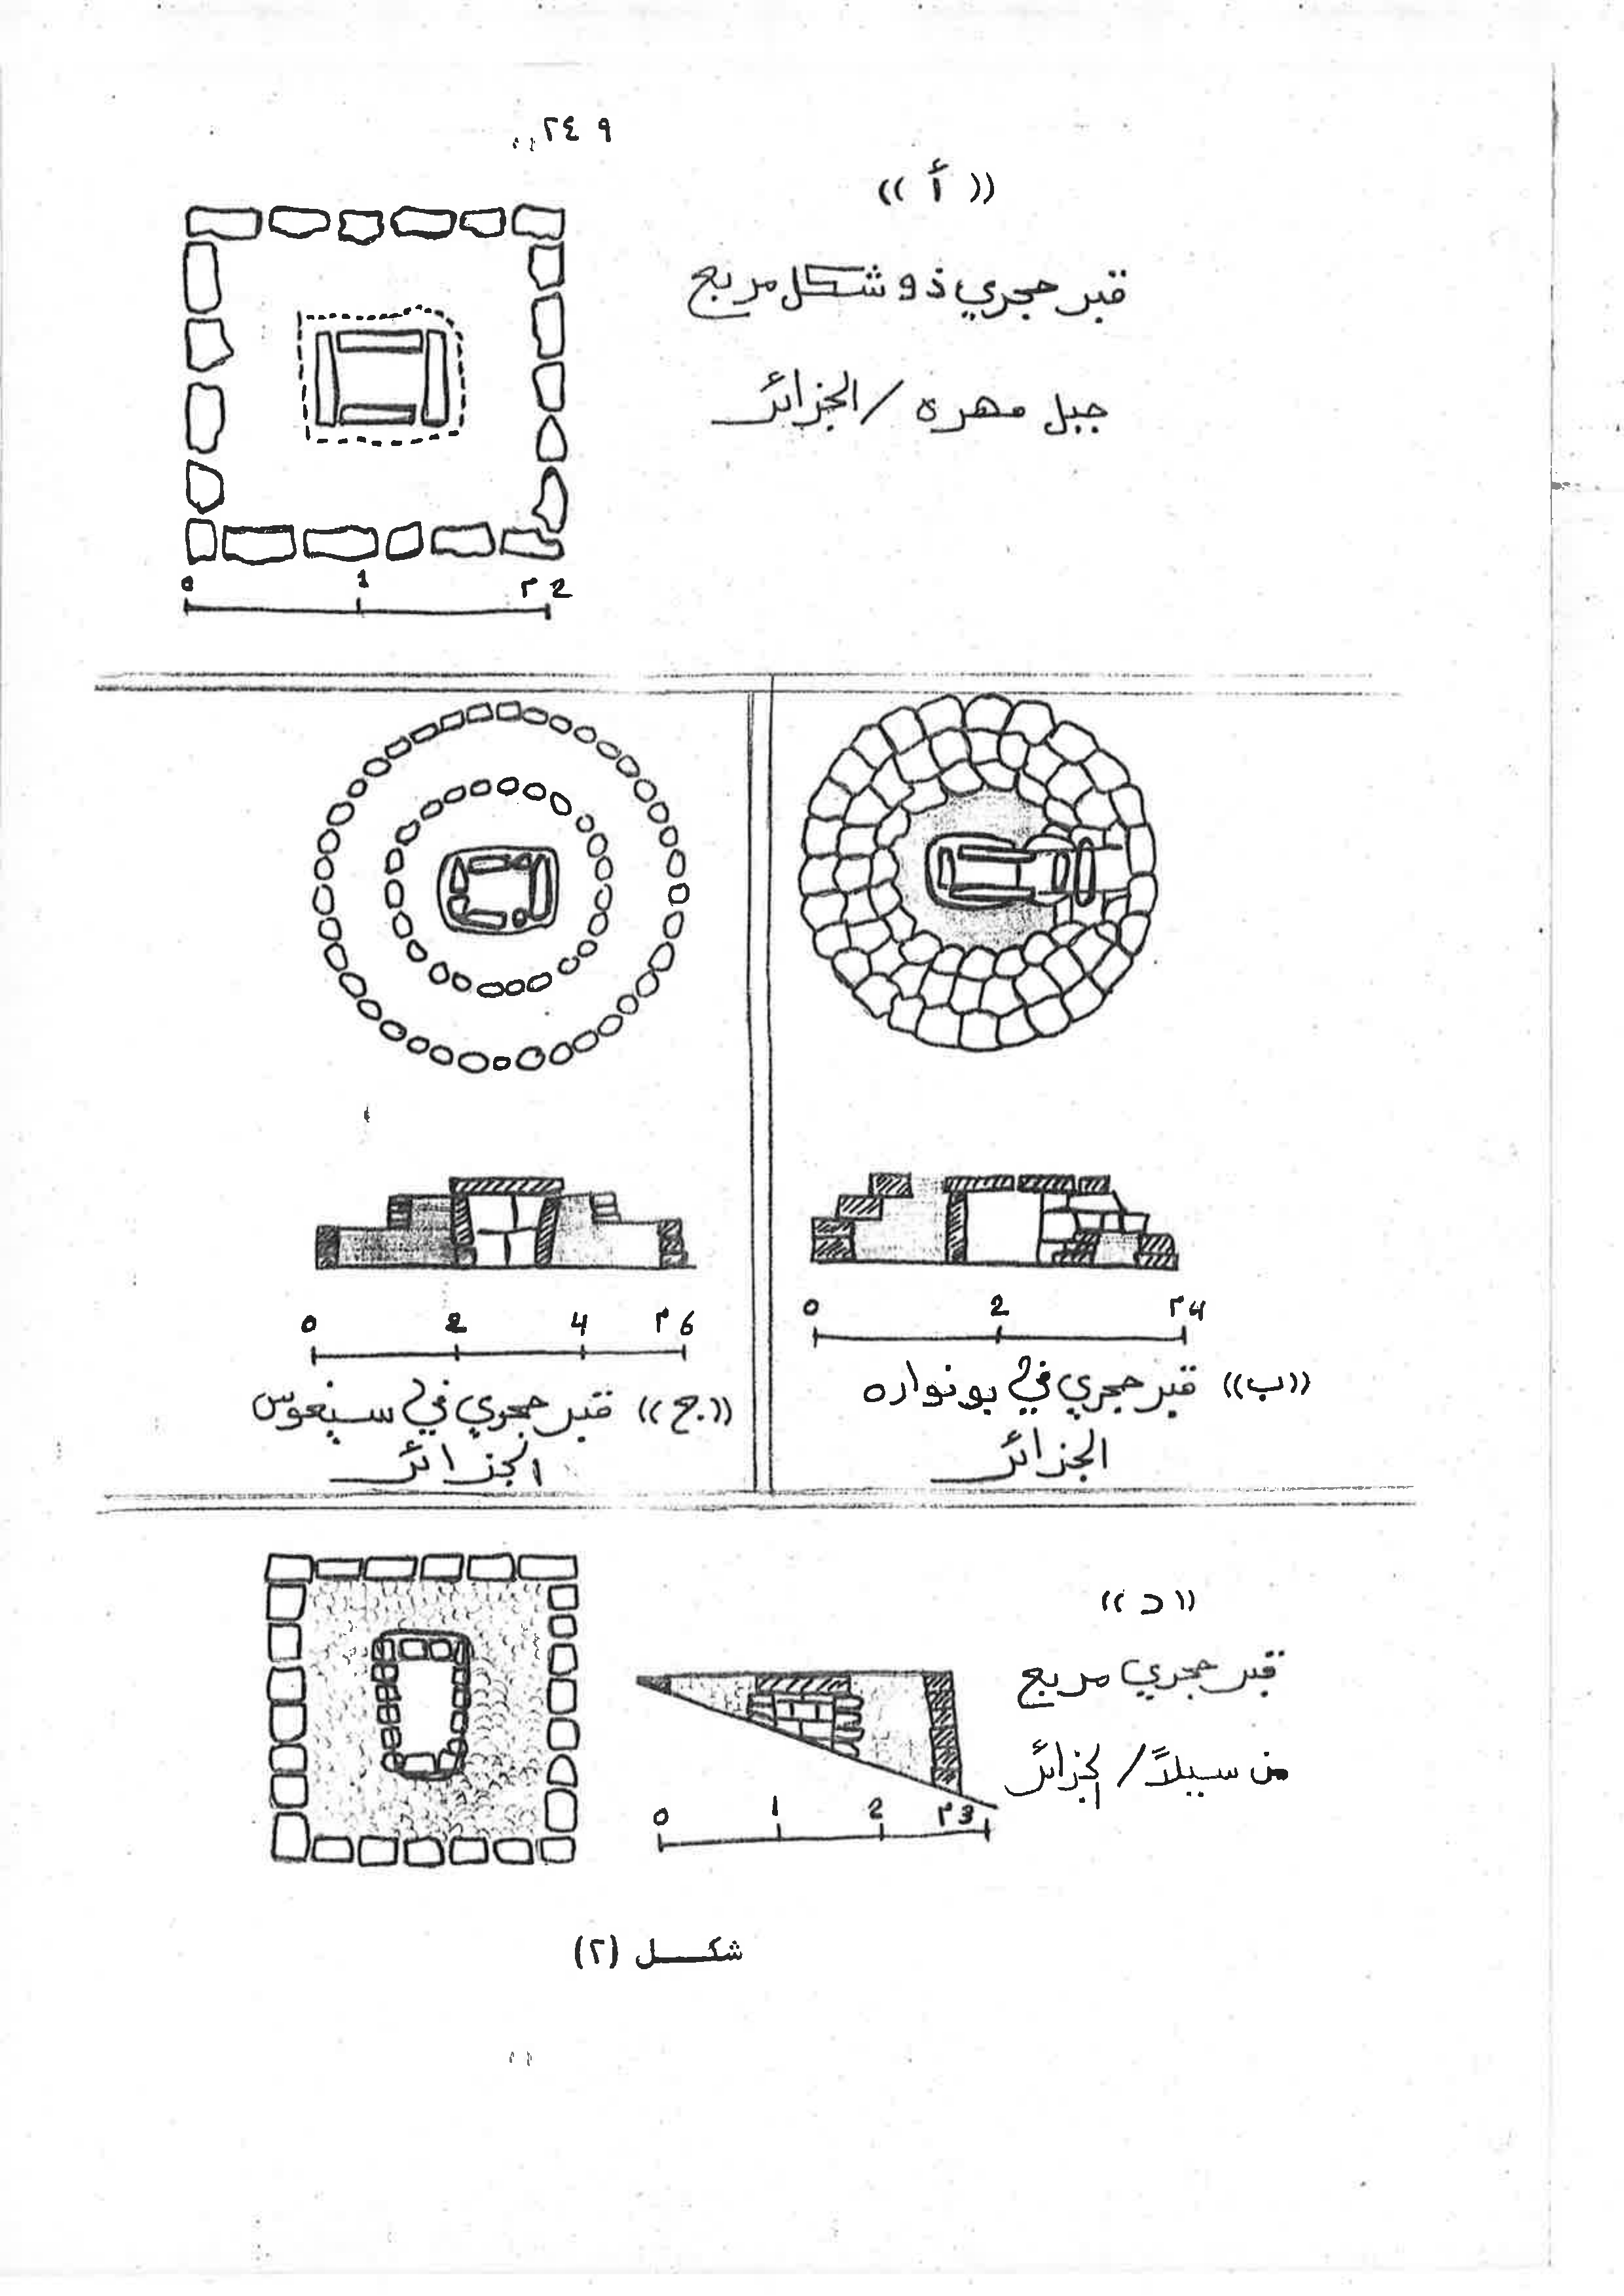 ٢٤٩
((أ))
قبر حجري ذو شكل مربع
جبل مهره / الجزائر
0 1 2 م
0 2 4 م
((ب)) قبر حجري في بونواره
الجزائر
0 2 4 6 م
((ج)) قبر حجري في سيغوس
الجزائر
((د))
قبر حجري مربع
من سيلا / الجزائر
0 1 2 3 م
شكل (٢)